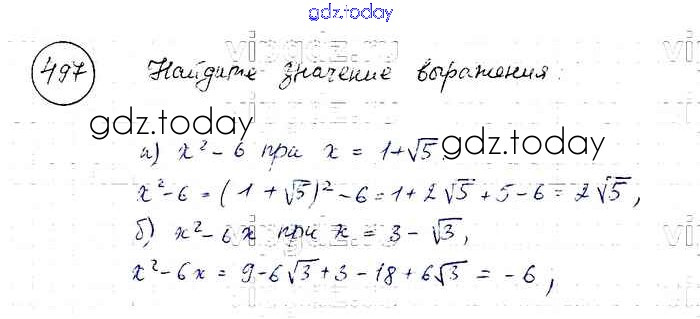 gdz.today
497 Найдите значение выражения:
gdz.today
а) x² - 6 при x = 1 + √5
gdz.today
x² - 6 = (1 + √5)² - 6 = 1 + 2√5 + 5 - 6 = 2√5,
б) x² - 6x при x = 3 - √3,
x² - 6x = 9 - 6√3 + 3 - 18 + 6√3 = -6,